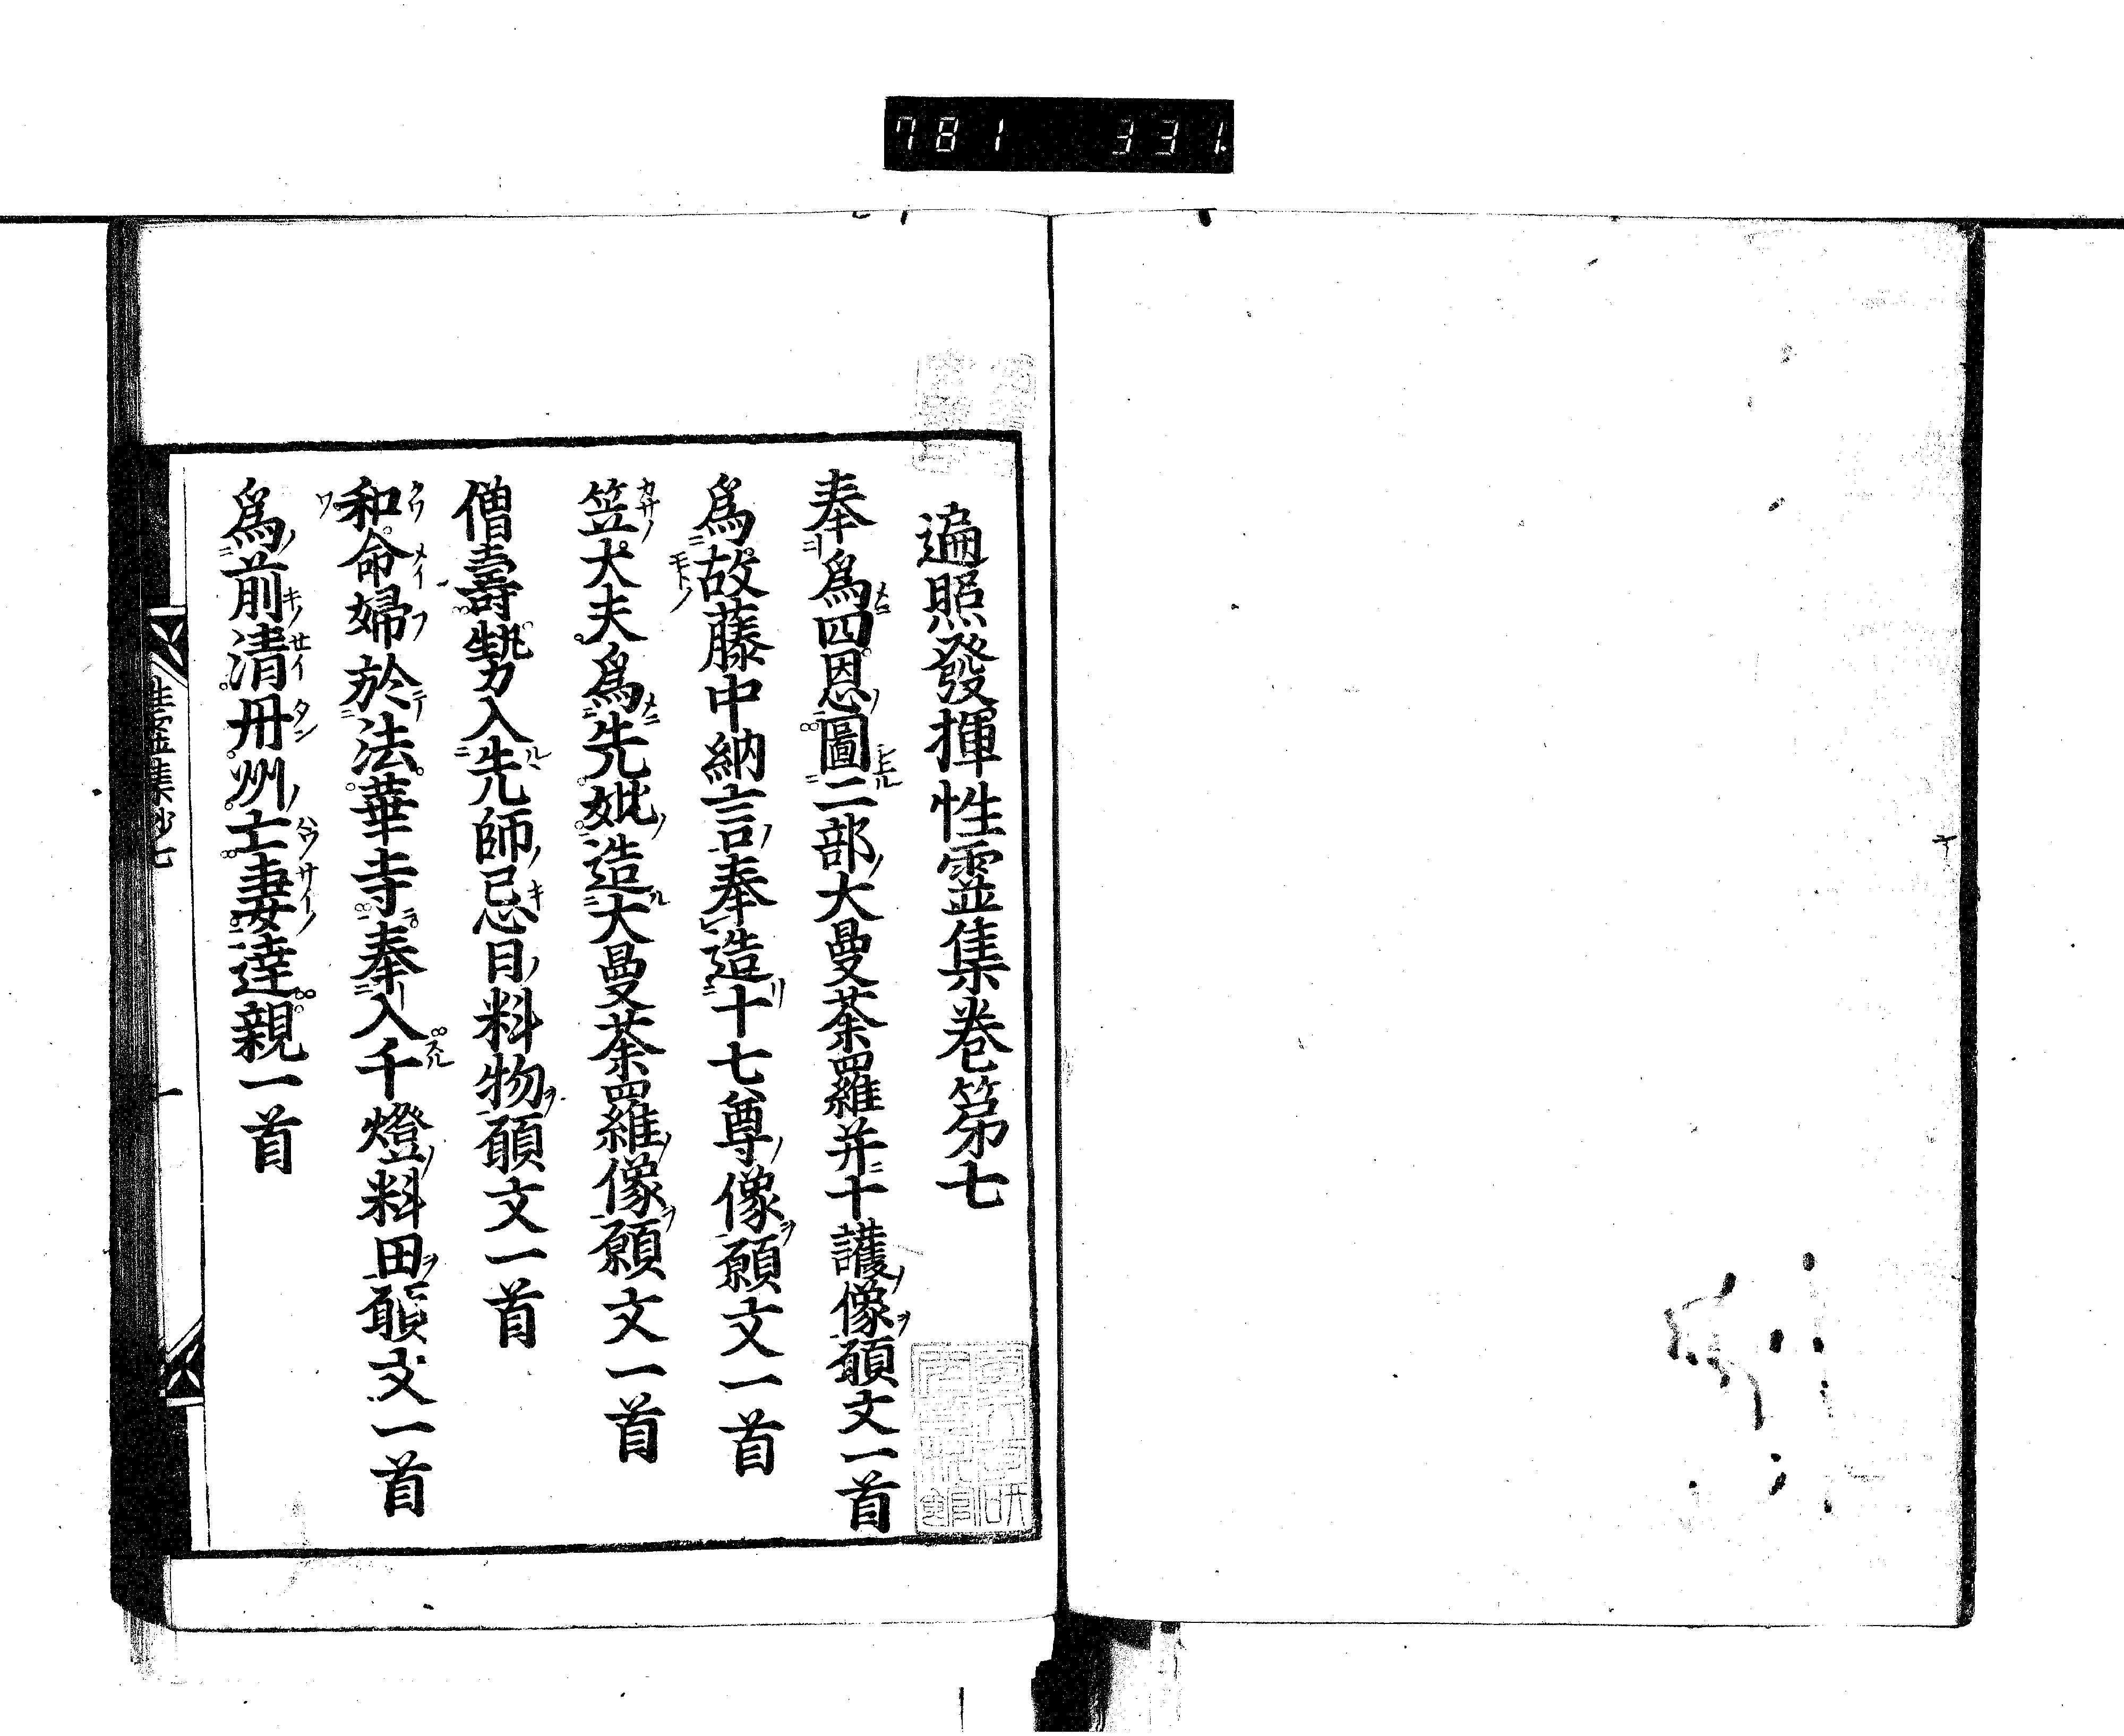 781 331
遍照發揮性霊集巻第七
奉爲四恩圖二部大曼荼羅并十護像願文一首
爲故藤中納言奉造十七尊像願文一首
笠大夫爲先妣造大曼荼羅像願文一首
僧壽勢入先師忌日料物願文一首
和命婦於法華寺奉入千燈料田願文一首
爲前清丹州亡妻達親一首
性霊集鈔七
一